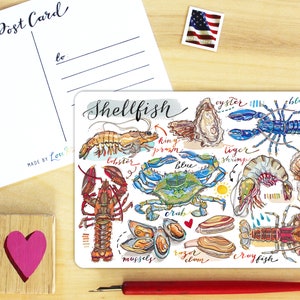 Post Card
to
MADE BY
Shellfish
oyster
king
prawn
lobster
blue
crab
tiger
shrimp
mussels
razor
clam
crayfish